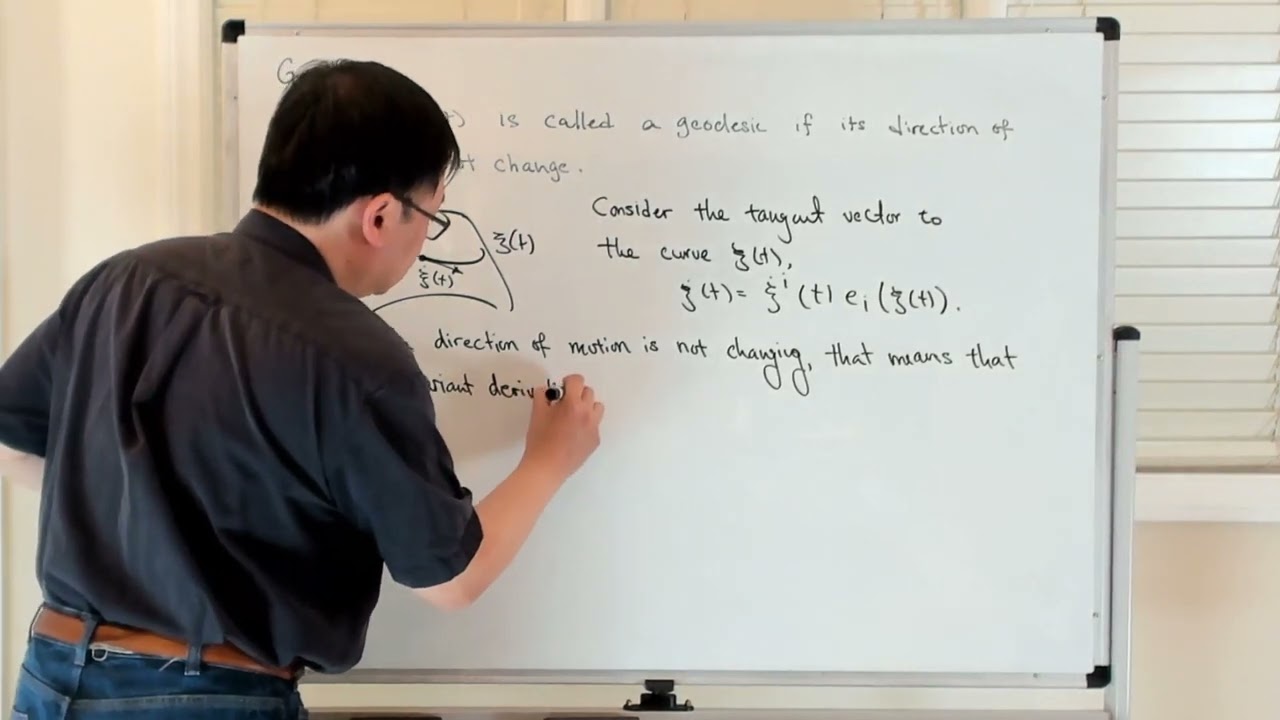 G
t) is called a geodesic if its direction of
not change.
Consider the tangent vector to
the curve ξ(t),
ξ(t)
ξ̇(t)
ξ̇(t) = ξ̇ⁱ(t) eᵢ(ξ(t)).
direction of motion is not changing, that means that
variant deriv